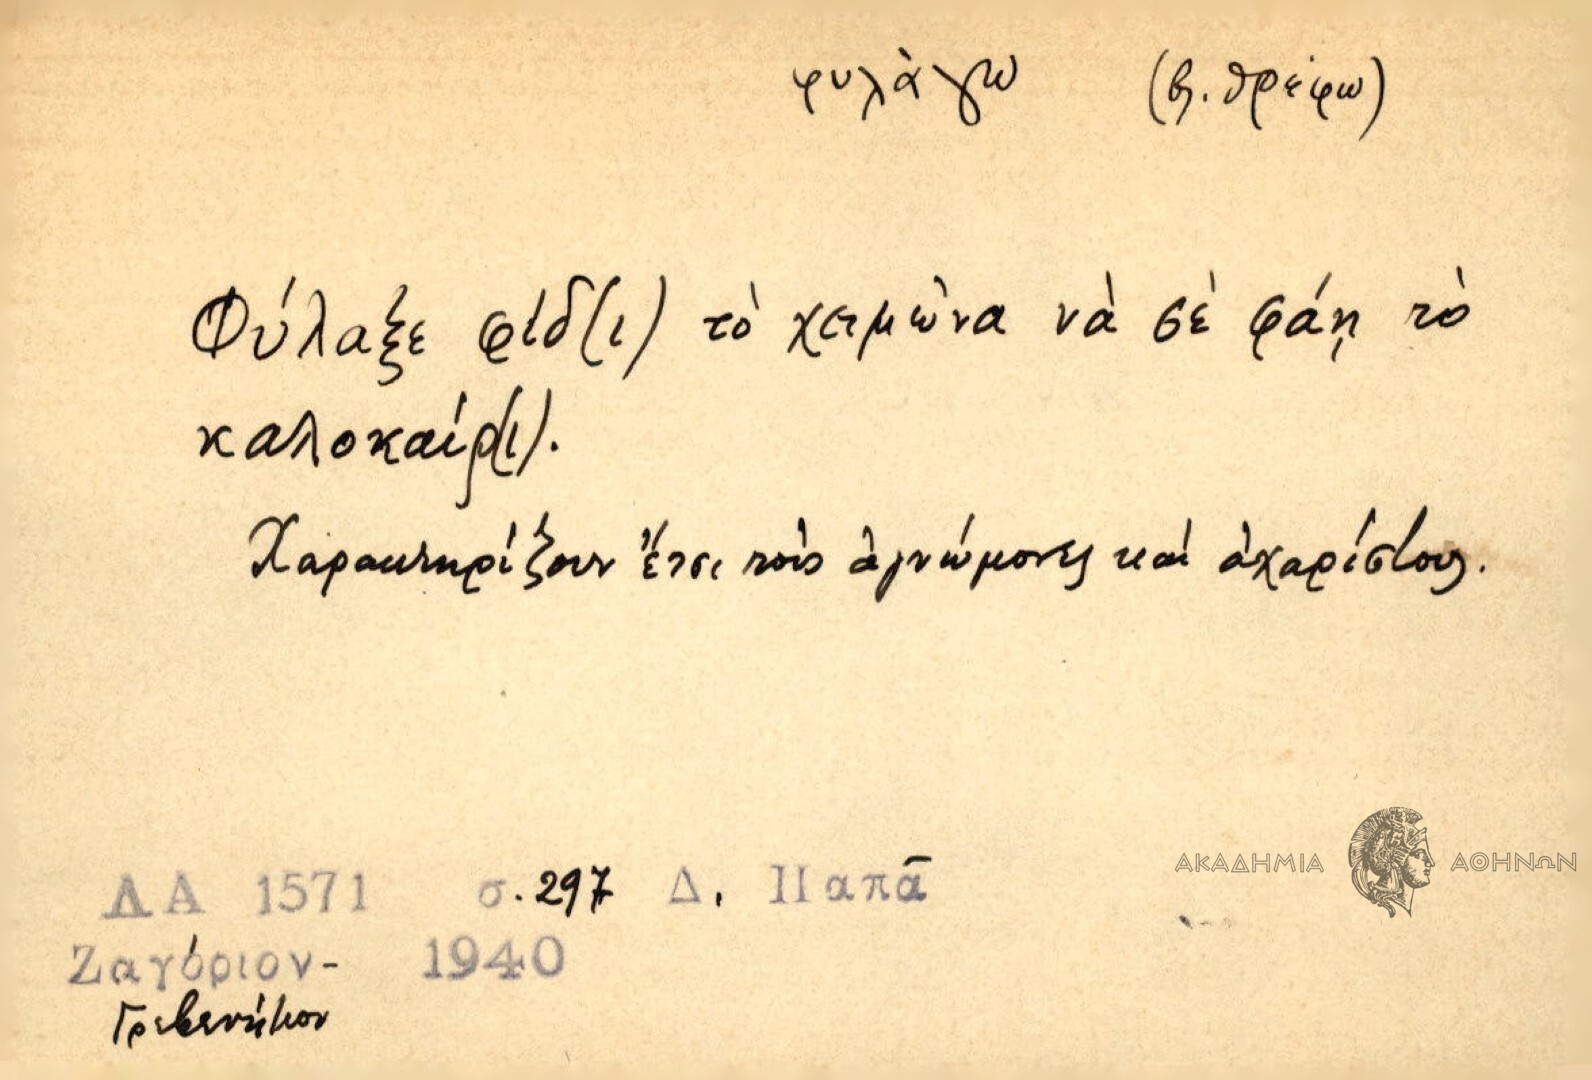 φυλάγω (βλ. θρέφω)
Φύλαξε φίδ(ι) τὸ χειμῶνα νὰ σὲ φάῃ τὸ
καλοκαίρ(ι).
Χαρακτηρίζουν ἔτσι τοὺς ἀγνώμονες καὶ ἀχαρίστους.
ΑΚΑΔΗΜΙΑ ΑΘΗΝΩΝ
ΛΑ 1571 σ. 297 Δ. Παπᾶ
Ζαγόριον - 1940
Γρεβενήτιον